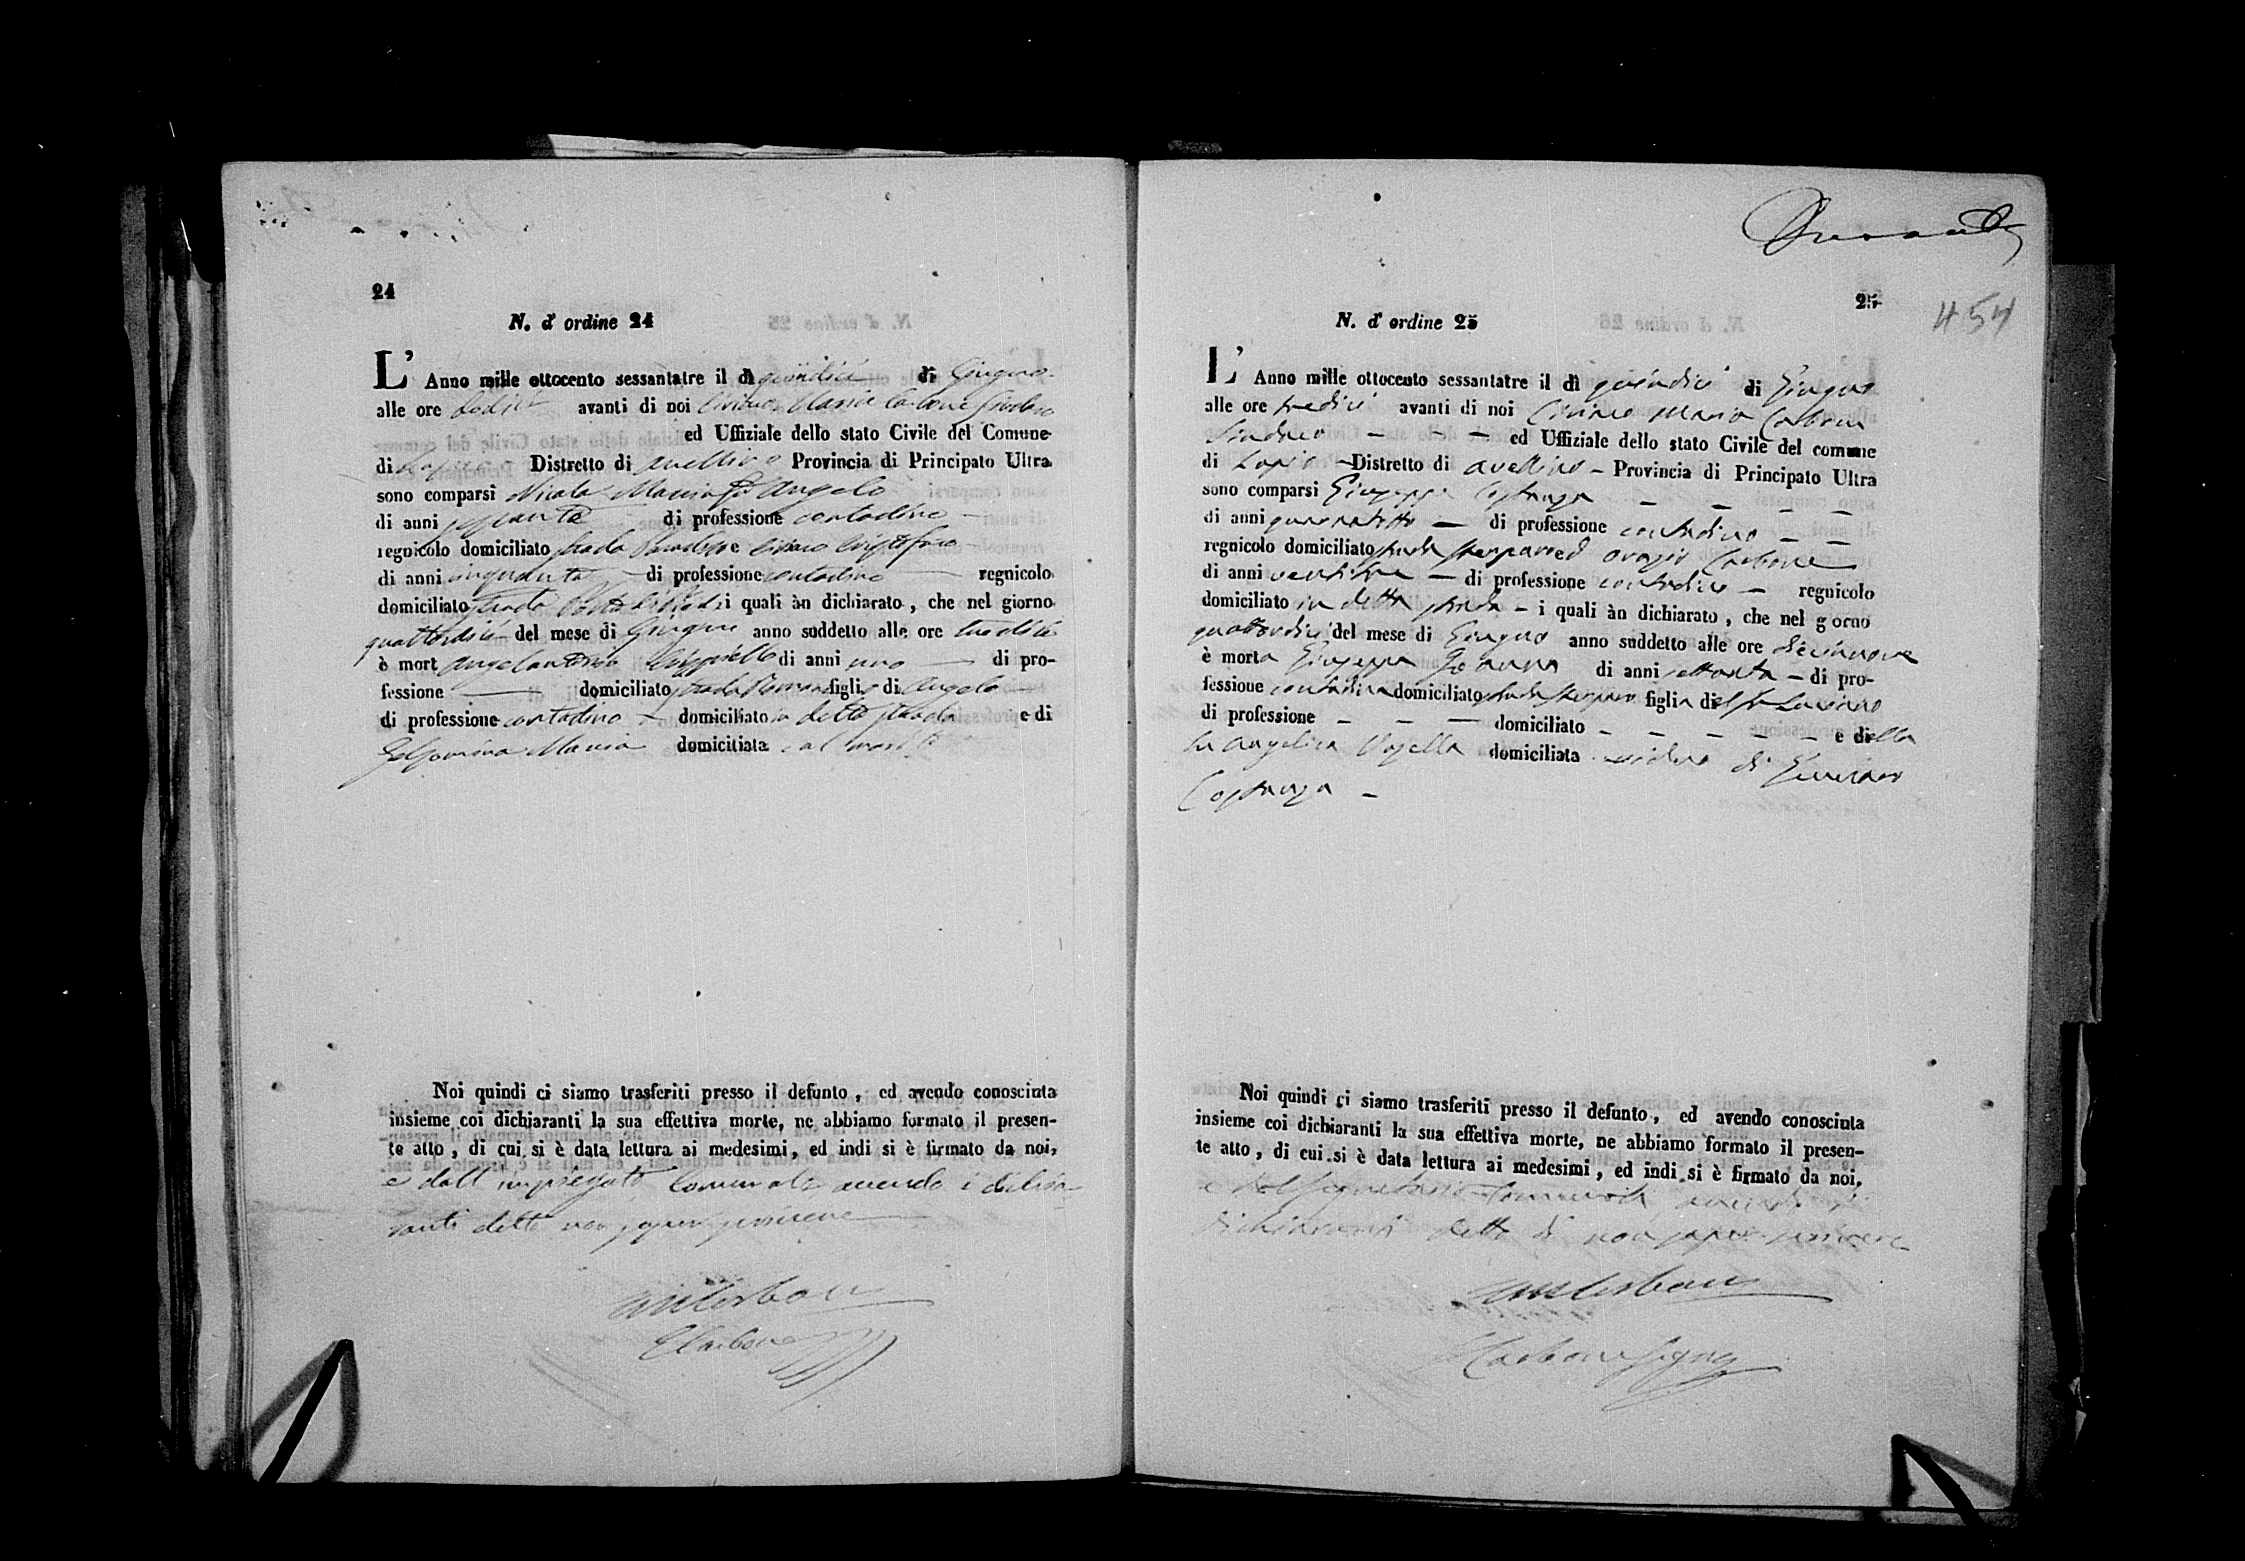 24
N. d' ordine 24
L' Anno mille ottocento sessantatre il dì quindici di Giugno
alle ore dodici avanti di noi Ciriaco Maria Carbone Sindaco
ed Uffiziale dello stato Civile del Comune
di Lapio Distretto di Avellino Provincia di Principato Ultra
sono comparsi Nicola Maria Angelo
di anni di professione contadino
regnicolo domiciliato strada e Ciriaco
di anni cinquanta di professione contadino regnicolo
domiciliato strada i quali àn dichiarato, che nel giorno
quattordici del mese di Giugno anno suddetto alle ore tredici
è mort Angelantonio di anni uno di pro-
fessione domiciliato strada figlio di Angelo
di professione contadino domiciliato in detta strada e di
Gelsomina Maria domiciliata col marito
Noi quindi ci siamo trasferiti presso il defunto, ed avendo conosciuta
insieme coi dichiaranti la sua effettiva morte, ne abbiamo formato il presen-
te atto, di cui si è data lettura ai medesimi, ed indi si è firmato da noi,
e dall' impiegato Comunale avendo i dichia-
ranti detto non saper scrivere
Carbone
25
454
N. d' ordine 25
L' Anno mille ottocento sessantatre il dì quindici di Giugno
alle ore tredici avanti di noi Ciriaco Maria Carbone
Sindaco ed Uffiziale dello stato Civile del comune
di Lapio Distretto di Avellino Provincia di Principato Ultra
sono comparsi Giuseppe Costanza
di anni quarantotto di professione contadino
regnicolo domiciliato strada ed Orazio Carbone
di anni ventitre di professione contadino regnicolo
domiciliato in detta strada i quali àn dichiarato, che nel giorno
quattordici del mese di Giugno anno suddetto alle ore diecinove
è morta Giuseppa di anni settanta di pro-
fessione contadina domiciliato strada figlia del fu
di professione domiciliato e della
fu Angelica domiciliata vedova di
Costanza
Noi quindi ci siamo trasferiti presso il defunto, ed avendo conosciuta
insieme coi dichiaranti la sua effettiva morte, ne abbiamo formato il presen-
te atto, di cui si è data lettura ai medesimi, ed indi si è firmato da noi,
e dal Segretario Comunale avendo i
dichiaranti detto di non saper scrivere
Carbone